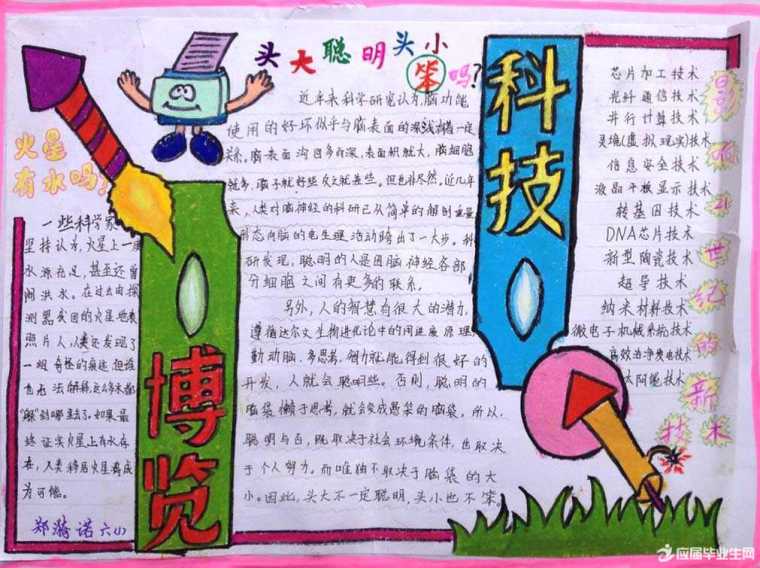 头大聪明头小
笨吗?
近年来科学研究认为,脑功能
使用的好坏似乎与脑表面的深浅有着一定
关系。脑表面沟回多而深,表面积就大,脑细胞
就多,脑子就好些,反之就差些。但也不尽然。近几年
来,人类对脑神经的科研已从简单的解剖重量
形态向脑的电生理活动跨出了一大步。科
研发现,聪明的人是因脑神经各部
分细胞之间有更多的联系。
另外,人的智慧有很大的潜力,
遵循达尔文生物进化论中的用进废退原理,
勤动脑、多思考、智力就能得到很好的
开发,人就会聪明些。否则,聪明的
脑袋懒于思考,就会变成愚笨的脑袋。所以,
聪明与否,既取决于社会环境条件,也取决
于个人努力。而唯独不取决于脑袋的大
小。因此,头大不一定聪明,头小也不笨。
火星
有水吗?
一些科学家
坚持认为,火星上一度
水源充足,甚至还曾
闹洪水。在过去由探
测器实回的火星地表
照片,人类还发现了
一组奇怪的痕迹,但谁
也无法解释这么多水都
"躲"到哪里去了。如果最
终证实火星上有水存
在,人类移居火星将成
为可能。
郑漪诺 六(1)
博览
科技
芯片加工技术
光纤通信技术
并行计算技术
灵境(虚拟现实)技术
信息安全技术
液晶平板显示技术
转基因技术
DNA芯片技术
新型陶瓷技术
超导技术
纳米材料技术
微电子机械系统技术
高效洁净发电技术
太阳能技术
影响21世纪的新技术
应届毕业生网